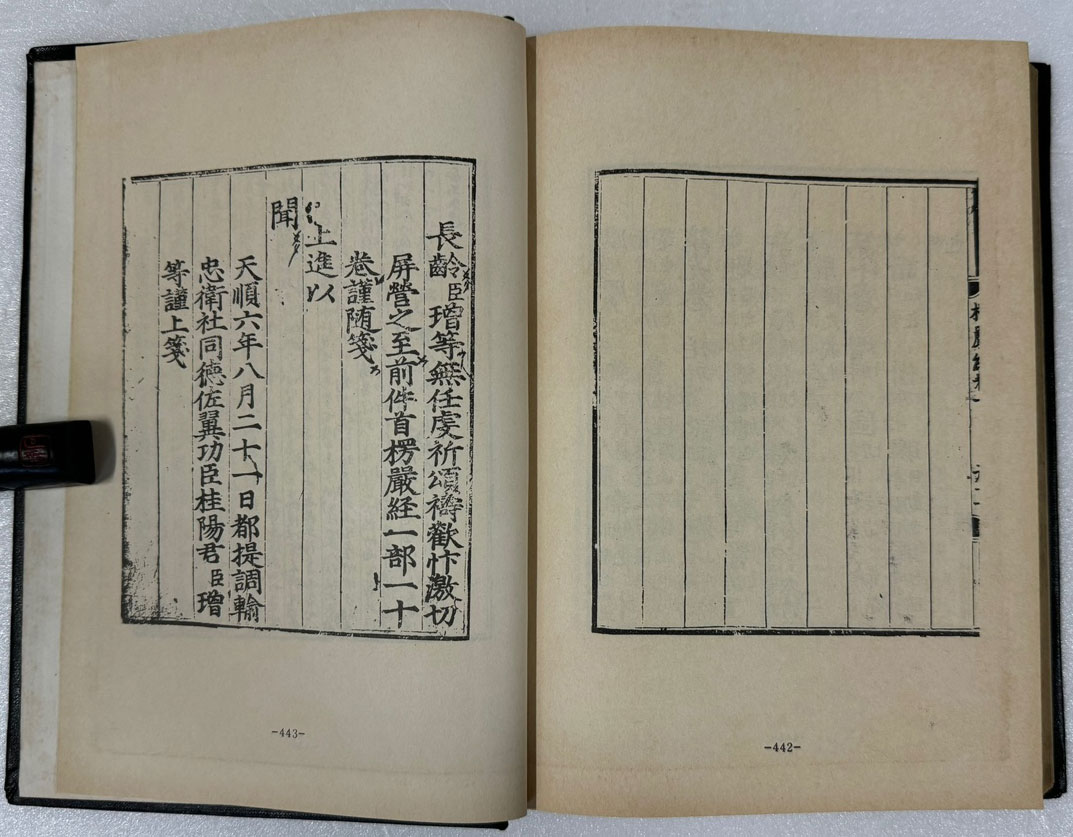 -442-
長齡臣璔等無任虔祈頌禱歡忭激切
屏營之至前件首楞嚴経一部一十
卷謹随箋
上進以
聞
天順六年八月二十一日都提調輸
忠衛社同德佐翼功臣桂陽君臣璔
等謹上箋
-443-